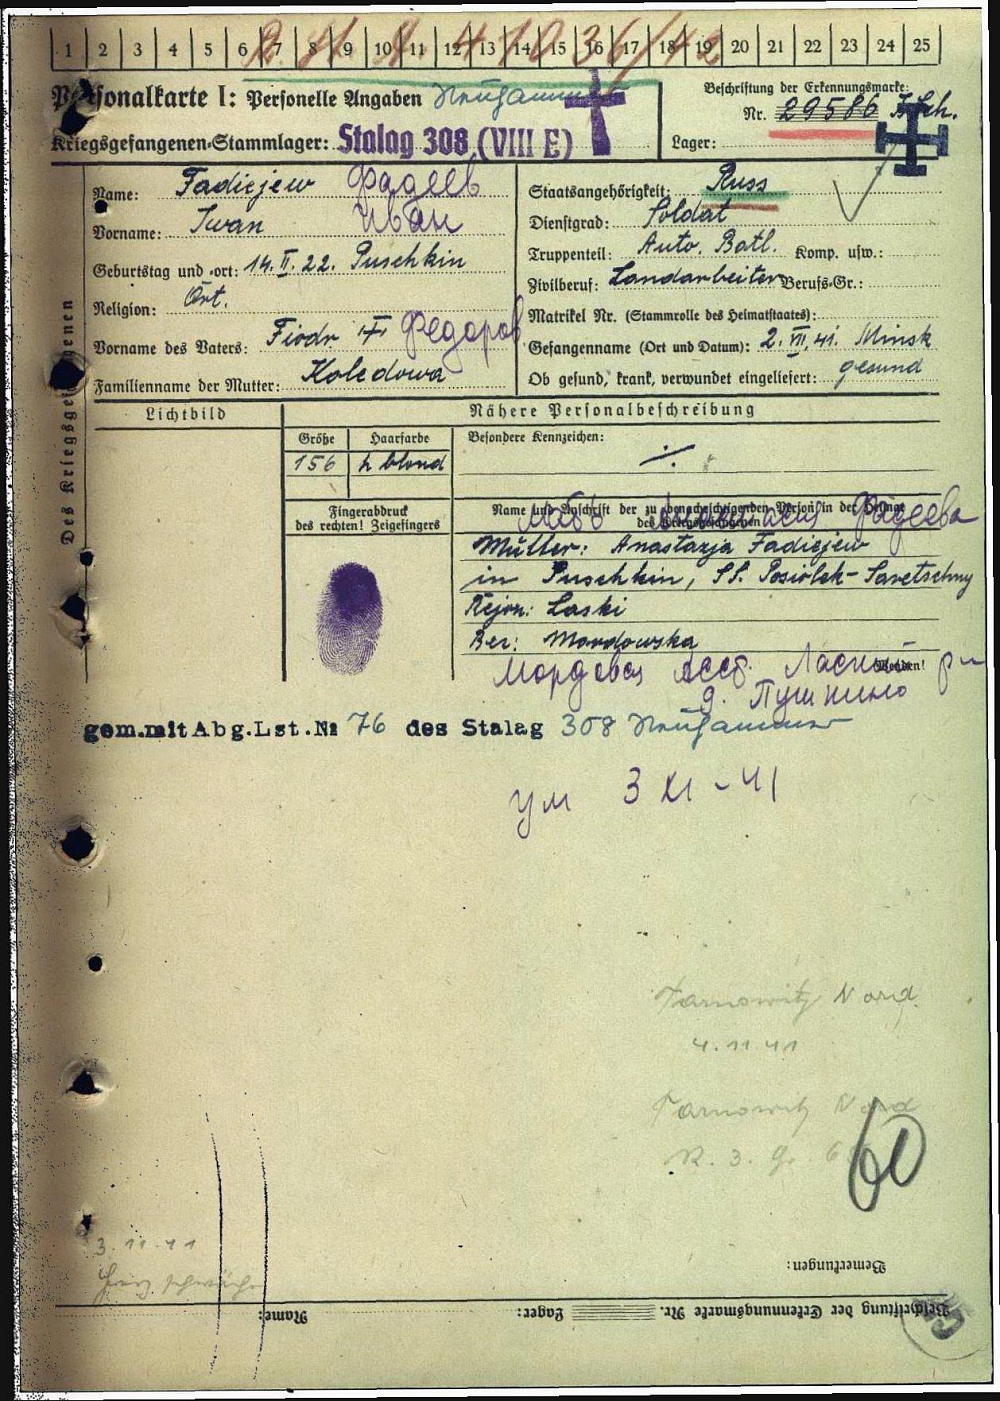 1 2 3 4 5 6 7 8 9 10 11 12 13 14 15 16 17 18 19 20 21 22 23 24 25
Personalkarte I: Personelle Angaben Neuhammer
Kriegsgefangenen-Stammlager: Stalag 308 (VIII E)
Beschriftung der Erkennungsmarke:
Nr. 29586
Lager:
Des Kriegsgefangenen
Name: Fadiejew Фадеев
Vorname: Iwan Иван
Geburtstag und -ort: 14.II.22. Puschkin
Religion: Ort.
Vorname des Vaters: Fiodr Федоров
Familienname der Mutter: Koledowa
Staatsangehörigkeit: Russ
Dienstgrad: Soldat
Truppenteil: Auto. Batl. Komp. usw.:
Zivilberuf: Landarbeiter Berufs-Gr.:
Matrikel Nr. (Stammrolle des Heimatstaates):
Gefangenname (Ort und Datum): 2.VII.41. Minsk
Ob gesund, krank, verwundet eingeliefert: gesund
Lichtbild
Nähere Personalbeschreibung
Größe Haarfarbe Besondere Kennzeichen:
156 h blond
Fingerabdruck
des rechten! Zeigefingers
Name und Anschrift der zu benachrichtigenden Person in der Heimat
des Kriegsgefangenen
Фадеева
Mutter: Anastazja Fadiejew
in Puschkin,
Rejon: Laski
Ber: Mordowska
Мордовся Ассб. р-н
Wenden!
д. Пушкино
gem.mit Abg.Lst.№ 76 des Stalag 308 Neuhammer
ум 3 XI-41
Tarnowitz Nord
4.11.41
Tarnowitz Nord
R. 3. Gr. 60
60
3.11.41
Herzschwäche
Bemerkungen:
Name: Lager: Beschriftung der Erkennungsmarke Nr.